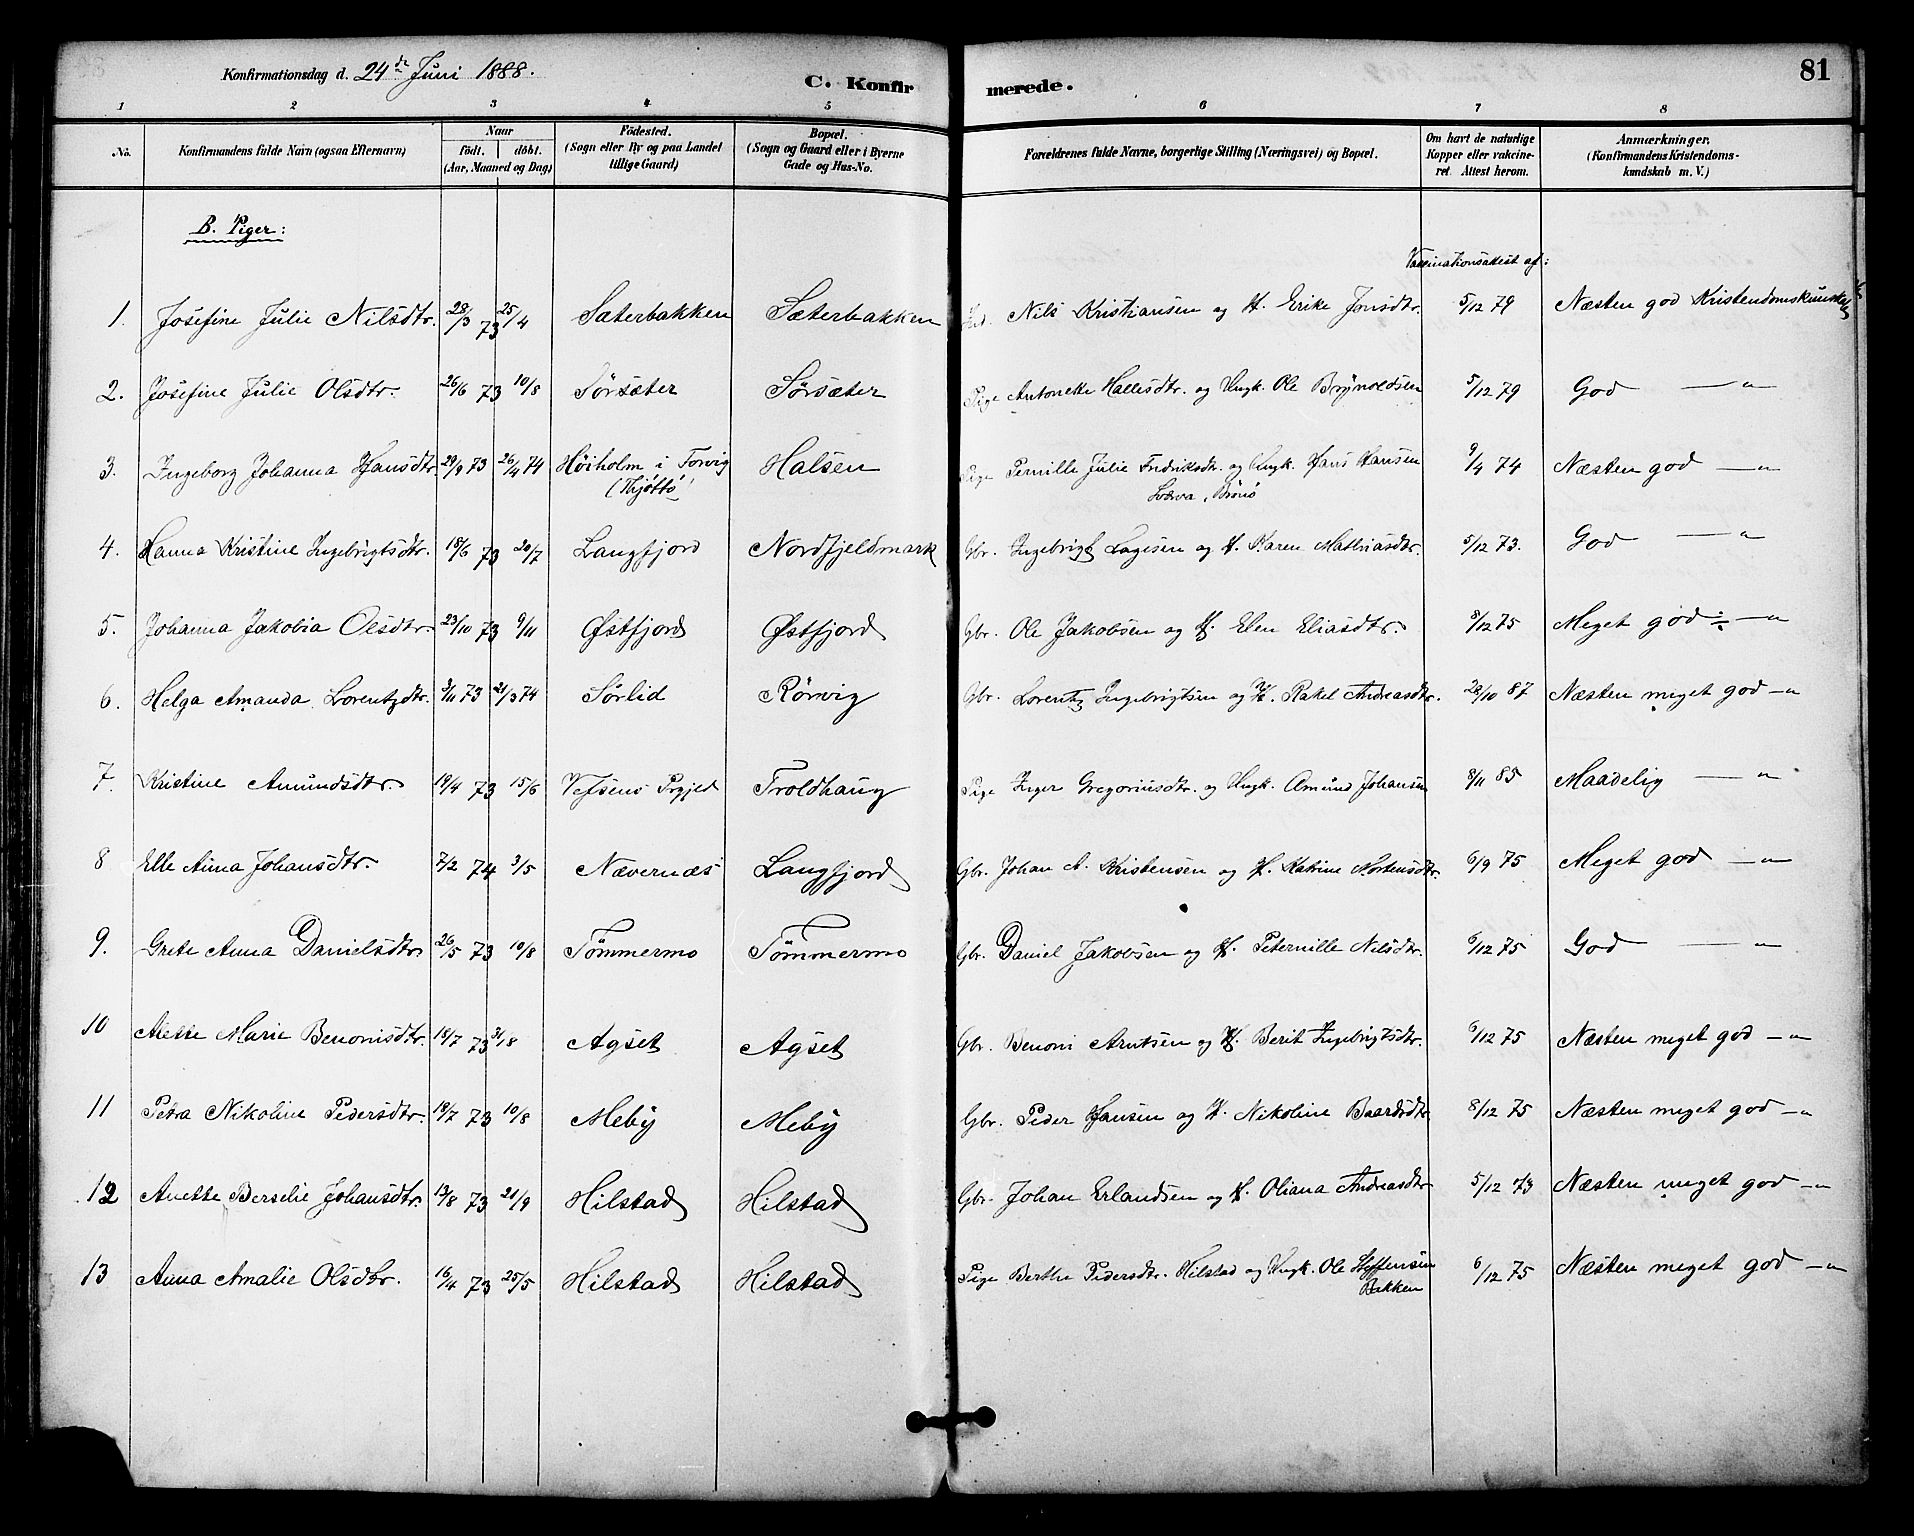 Konfirmationsdag d. 24de Juni 1888.
C. Konfirmerede.
81
1 2 3 4 5 6 7 8
No.
Konfirmandens fulde Navn (ogsaa Efternavn)
Naar
födt. döbt.
(Aar, Maaned og Dag)
Födested.
(Sogn eller By og paa Landet
tillige Gaard)
Bopæl.
(Sogn og Gaard eller i Byerne
Gade og Hus-No.
Forældrenes fulde Navne, borgerlige Stilling (Næringsvei) og Bopæl.
Om havt de naturlige
Kopper eller vakcine-
ret. Attest herom.
Anmærkninger.
(Konfirmandens Kristendoms-
kundskab m. V.)
B. Piger:
Vaccinationsattest af:
1. Josefine Julie Nilsdtr. 28/3 73 25/4 Sæterbakken Sæterbakken Ind. Nils Kristiansen og H. Erike Jonsdtr. 5/12 79 Næsten god Kristendomskundskab
2. Josefine Julie Olsdtr. 26/6 73 10/8 Sörsæter Sörsæter Pige Antonette Hallesdtr. og Ungk. Ole Brynoldsen 5/12 79 God — "
3. Ingeborg Johanna Hansdtr. 29/9 73 26/4 74 Höiholm i Torvig Halsen Pige Pernille Julie Fredriksdtr. og Ungk. Hans Hansen 9/4 74 Næsten god — "
(Thjöttö) Brönö
4. Hanna Kristine Ingebrigtsdtr. 18/6 73 20/7 Langfjord Nordfjeldmark Gbr. Ingebrigt Lagesen og H. Karen Mathiasdtr. 5/12 73. God — "
5. Johanna Jakobia Olsdtr. 23/10 73 9/11 Østfjord Østfjord Gbr. Ole Jakobsen og H. Elen Eliasdtr. 8/12 75 Meget god ÷ — "
6. Helga Amanda Lorentzdtr. 3/11 73 21/3 74 Sörlid Rörvig Gbr. Lorentz Ingebrigtsen og H. Rakel Andreasdtr. 28/10 87 Næsten meget god — "
7. Kristine Amundsdtr. 19/4 73 15/6 Vefsens Prgjeld Troldhaug Pige Inger Gregoriusdtr. og Ungk. Amund Johansen 8/11 85 Maadelig — "
8 Elle Anna Johansdtr. 7/2 74 3/5 Nævernæs Langfjord Gbr. Johan A. Kristensen og H. Katrine Mortensdtr. 6/9 75 Meget god — "
9. Grete Anna Danielsdtr 26/5 73 10/8 Tömmermo Tömmermo Gbr. Daniel Jakobsen og H. Peternille Nilsdtr. 6/12 75 God — "
10 Anette Marie Benonisdtr. 18/7 73 31/8 Agset Agset Gbr. Benoni Arntsen og H. Berit Ingebrigtsdtr. 6/12 75 Næsten meget god — "
11 Petra Nikoline Pedersdtr. 18/7 73 10/8 Meby Meby Gbr. Peder Hansen og H. Nikoline Baardsdtr 8/12 75 Næsten meget god — "
12 Anette Berselie Johansdtr. 13/8 73 21/9 Hilstad Hilstad Gbr. Johan Erlandsen og H. Oliana Andreasdtr 5/12 73 Næsten meget god — "
13 Anna Amalie Olsdtr. 16/4 73 25/5 Hilstad Hilstad Pige Berthe Pedersdtr. Hilstad og Ungk. Ole 6/12 75 Næsten meget god — "
Bakken